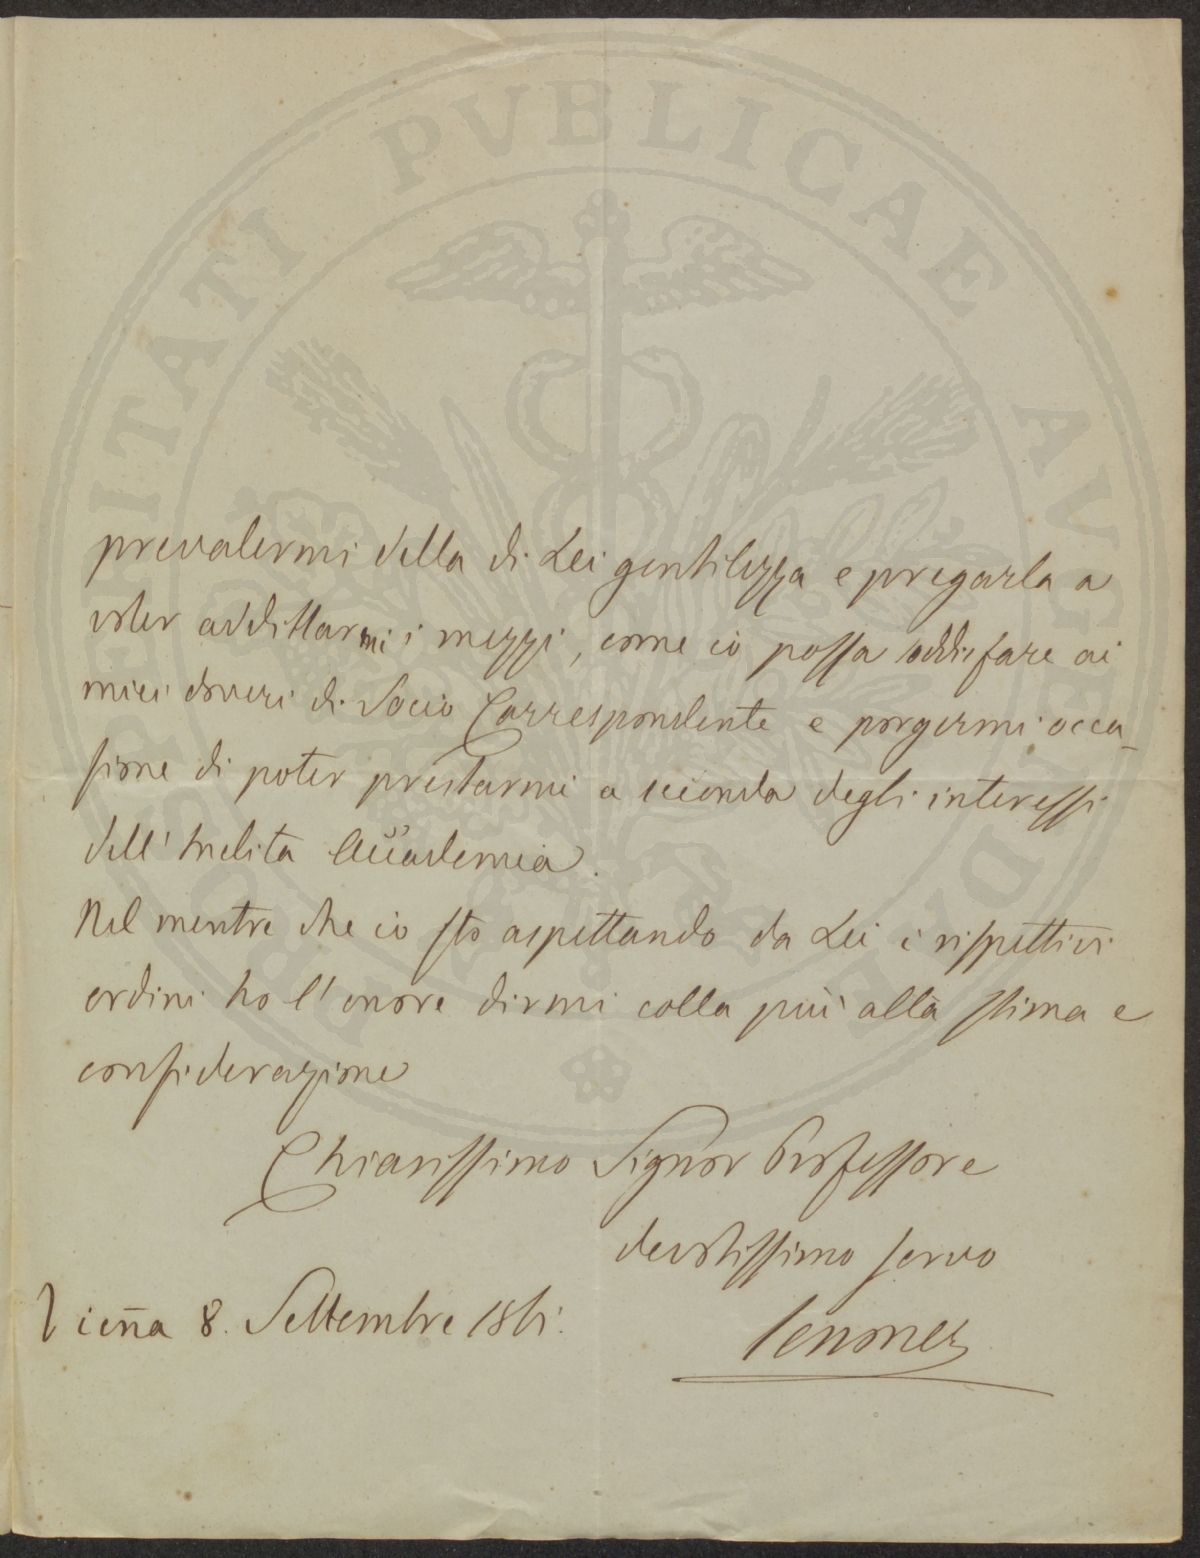 PROSPERITATI PVBLICAE AVGENDAE
prevalermi della di Lei gentilezza e pregarla a
voler addittarmi i mezzi, come io possa soddisfare ai
miei doveri di Socio Correspondente e porgermi occa-
sione di poter prestarmi a seconda degli interessi
dell' Inclita Accademia.
Nel mentre che io sto aspettando da Lei i rispettivi
ordini ho l'onore dirmi colla più alta stima e
considerazione
Chiarissimo Signor Professore
devotissimo servo
Vieña 8. Settembre 1861.